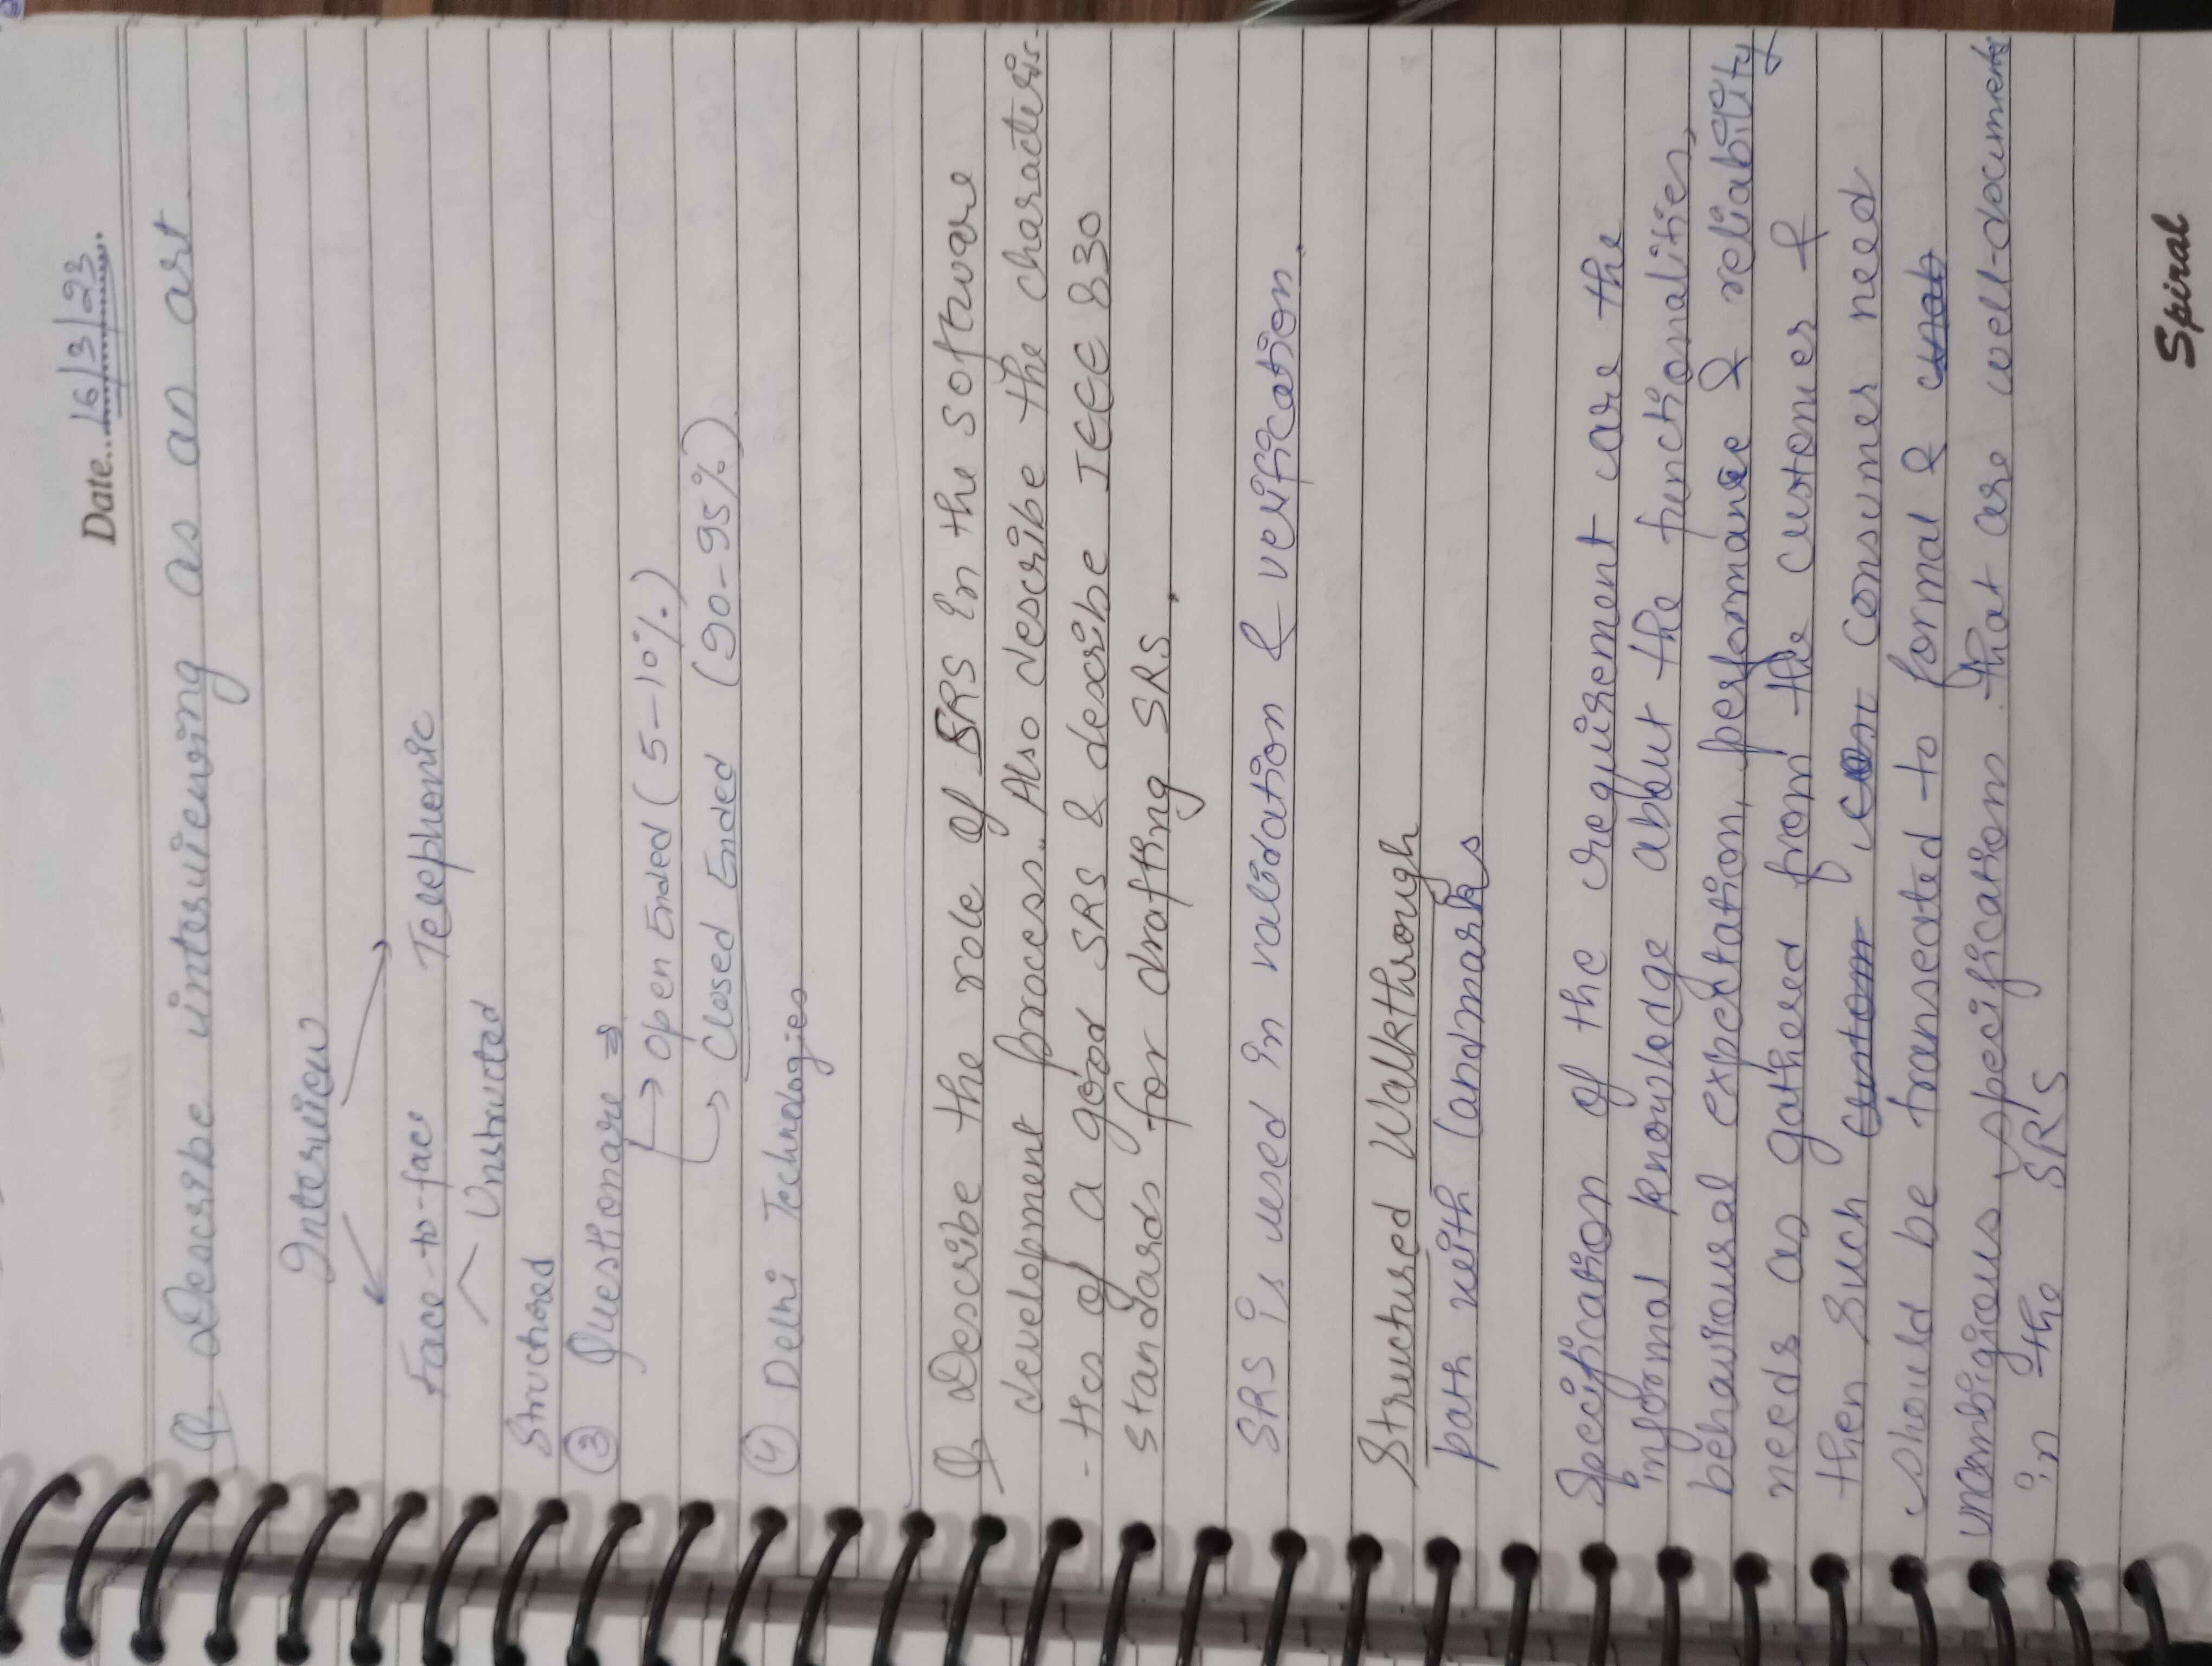 Date. 16/3/23
Q. Describe interviewing as an art.
Interview
Face-to-face Telephonic
Unstructed
Structured
③ Questionare ⇒
→ Open Ended (5-10%)
→ Closed Ended (90-95%)
④ Delhi Technologies
Q. Describe the role of SRS in the software
development process. Also describe the characteris-
-tics of a good SRS & describe IEEE 830
standards for drafting SRS.
SRS is used in validation & verification.
Structured Walkthrough
path with landmarks
Specification of the requirement are the
informal knowledge about the functionalities,
behavioural expectation, performance & reliability
needs as gathered from the customer &
then such consumer need
should be transeated to formal &
unambigious specifications that are well-documents
in the SRS
Spiral